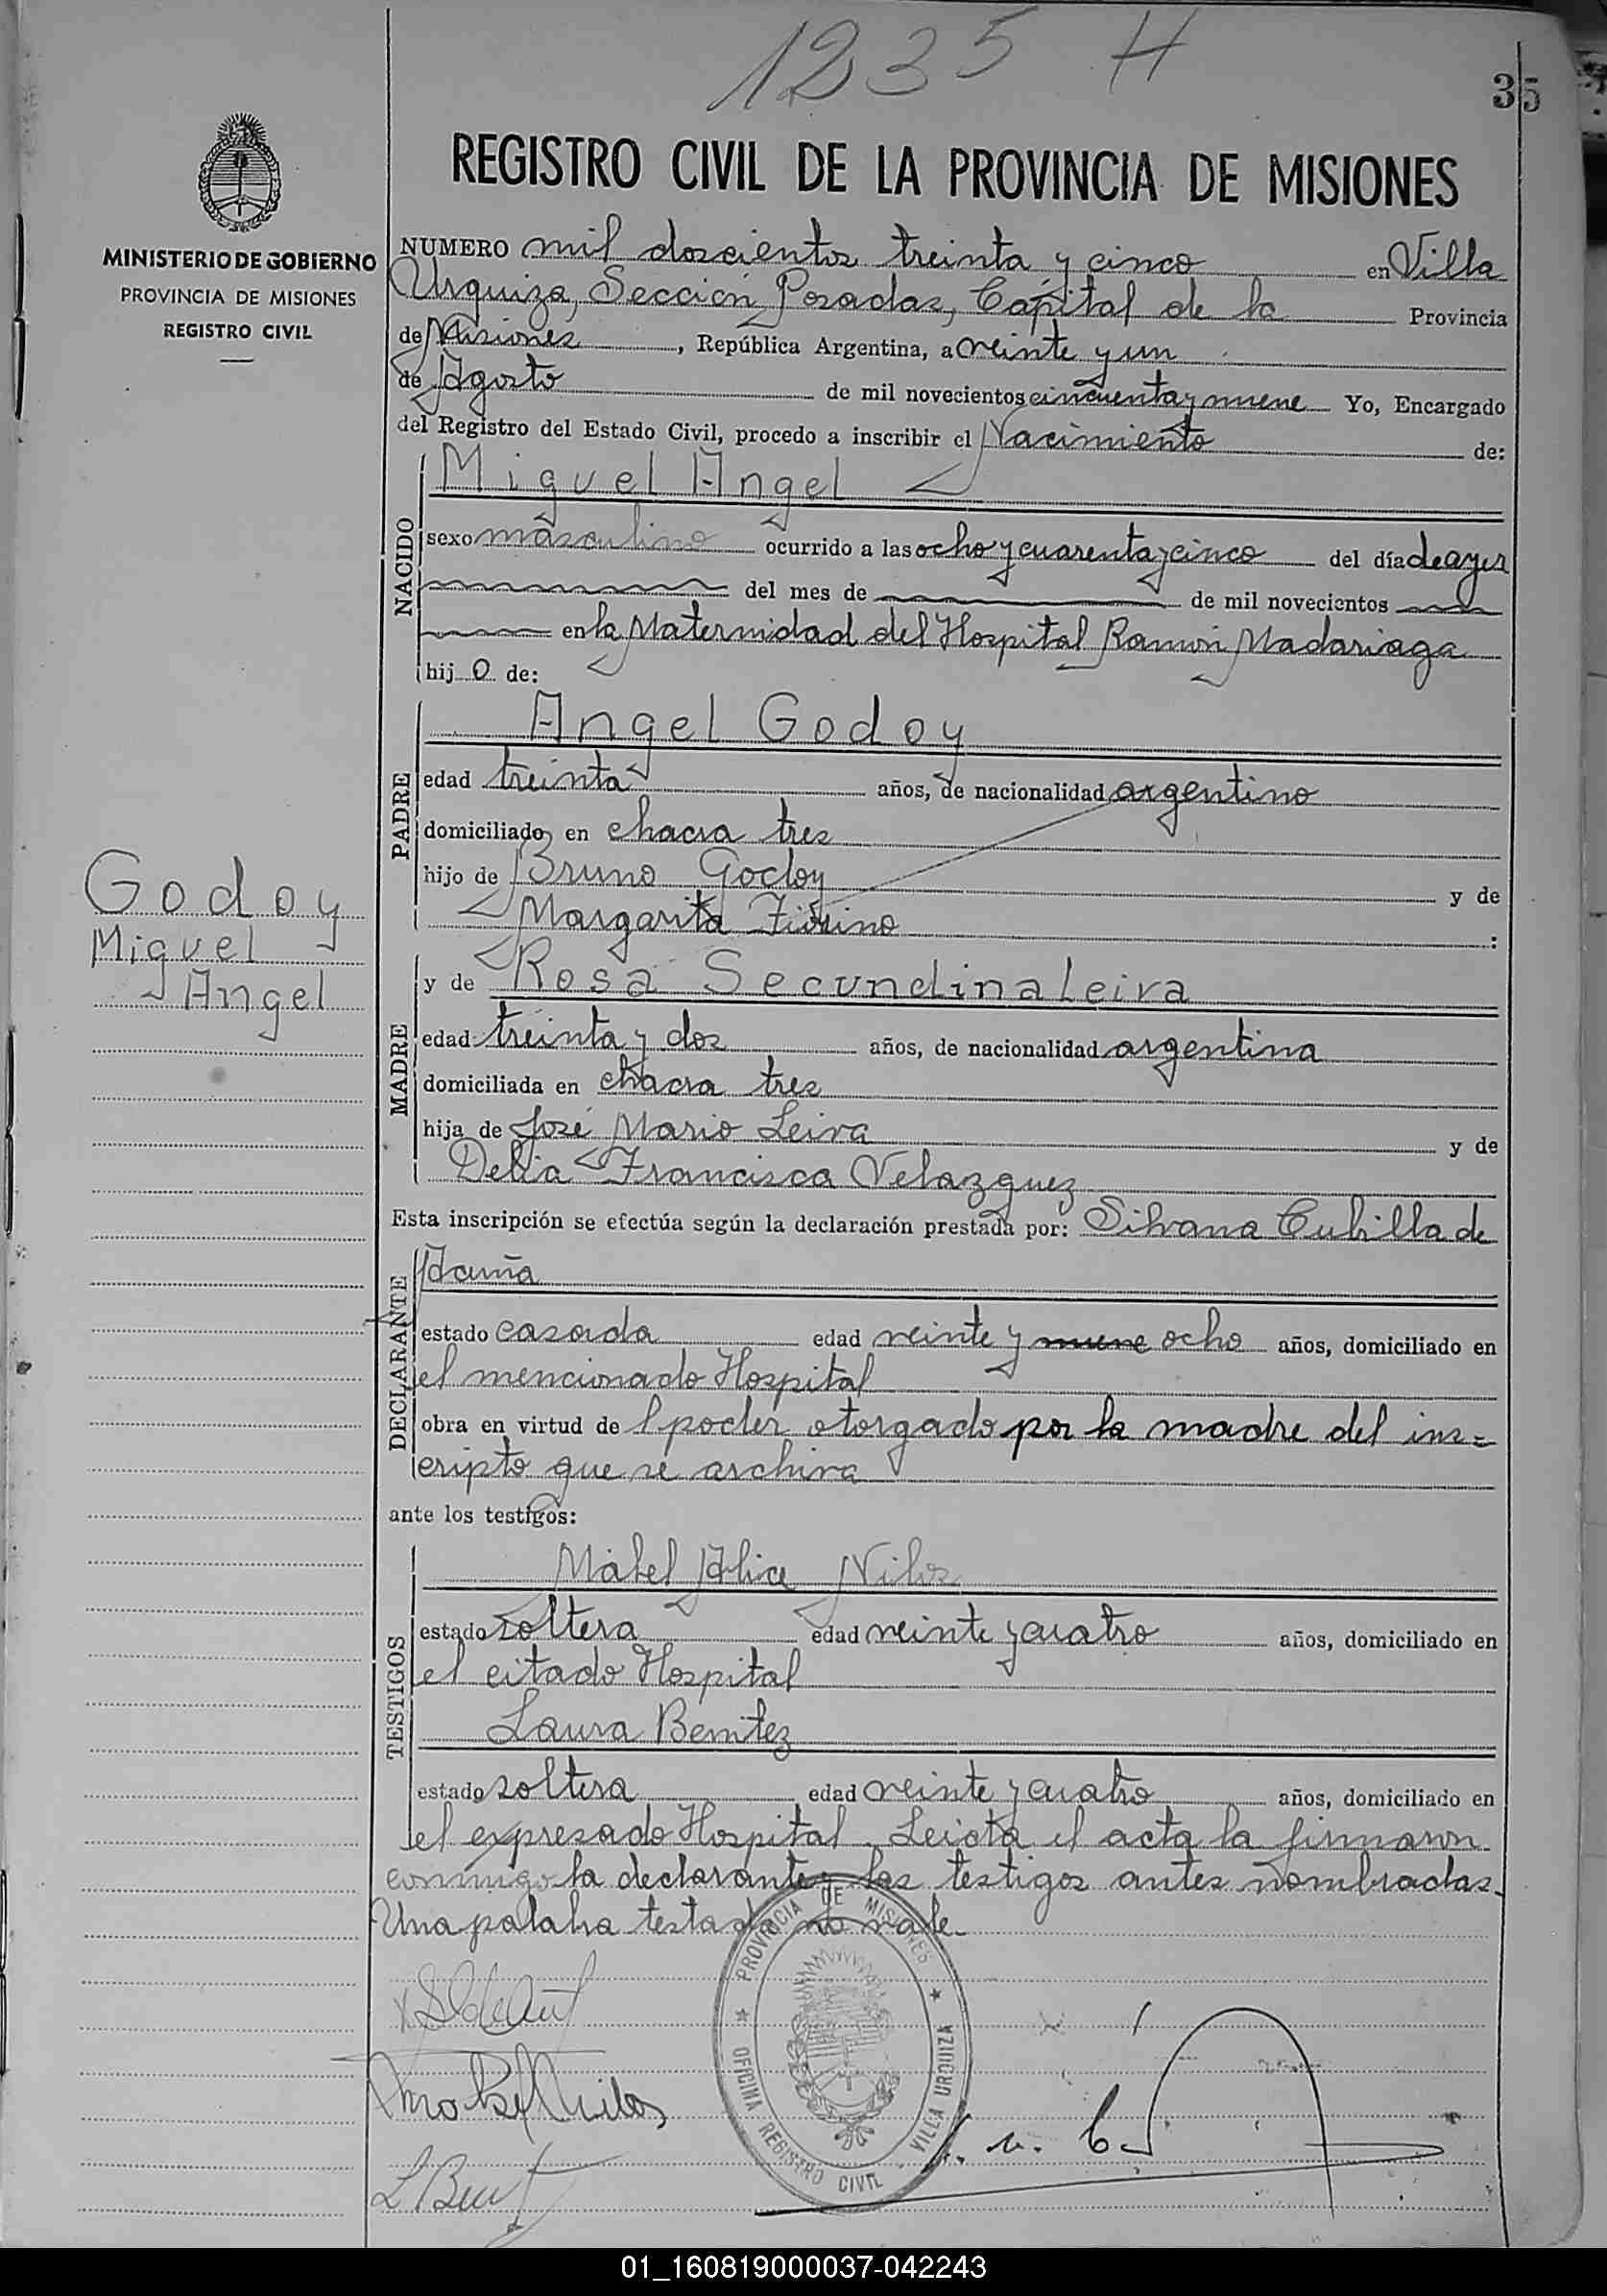 1235 H
35
REGISTRO CIVIL DE LA PROVINCIA DE MISIONES
MINISTERIO DE GOBIERNO
PROVINCIA DE MISIONES
REGISTRO CIVIL
NUMERO mil doscientos treinta y cinco en Villa
Urquiza, Sección Posadas, Capital de la Provincia
de Misiones, República Argentina, a veinte y un
de Agosto de mil novecientos cincuenta y nueve Yo, Encargado
del Registro del Estado Civil, procedo a inscribir el Nacimiento de:
NACIDO
Miguel Angel
sexo masculino ocurrido a las ocho y cuarenta y cinco del día de ayer
del mes de de mil novecientos
en la Maternidad del Hospital Ramón Madariaga
hij o de:
PADRE
Angel Godoy
edad treinta años, de nacionalidad argentino
domiciliado en chacra tres
hijo de Bruno Godoy y de
Margarita :
Godoy
Miguel
Angel
MADRE
y de Rosa Secundina Leiva
edad treinta y dos años, de nacionalidad argentina
domiciliada en chacra tres
hija de José Mario Leiva y de
Delia Francisca Velazquez
Esta inscripción se efectúa según la declaración prestada por: Silvana Cubilla de
DECLARANTE
Acuña
estado casada edad veinte y nueve ocho años, domiciliado en
el mencionado Hospital
obra en virtud de l poder otorgado por la madre del ins=
cripto que se archiva
ante los testigos:
TESTIGOS
Mabel Alice Nilos
estado soltera edad veinte y cuatro años, domiciliado en
el citado Hospital
Laura Benitez
estado soltera edad veinte y cuatro años, domiciliado en
el expresado Hospital. Leida el acta la firmaron
conmigo la declarante y las testigos antes nombradas.
Una palabra testada no vale.
PROVINCIA DE MISIONES
OFICINA REGISTRO CIVIL VILLA URQUIZA
Mabel Nilos
01_160819000037-042243